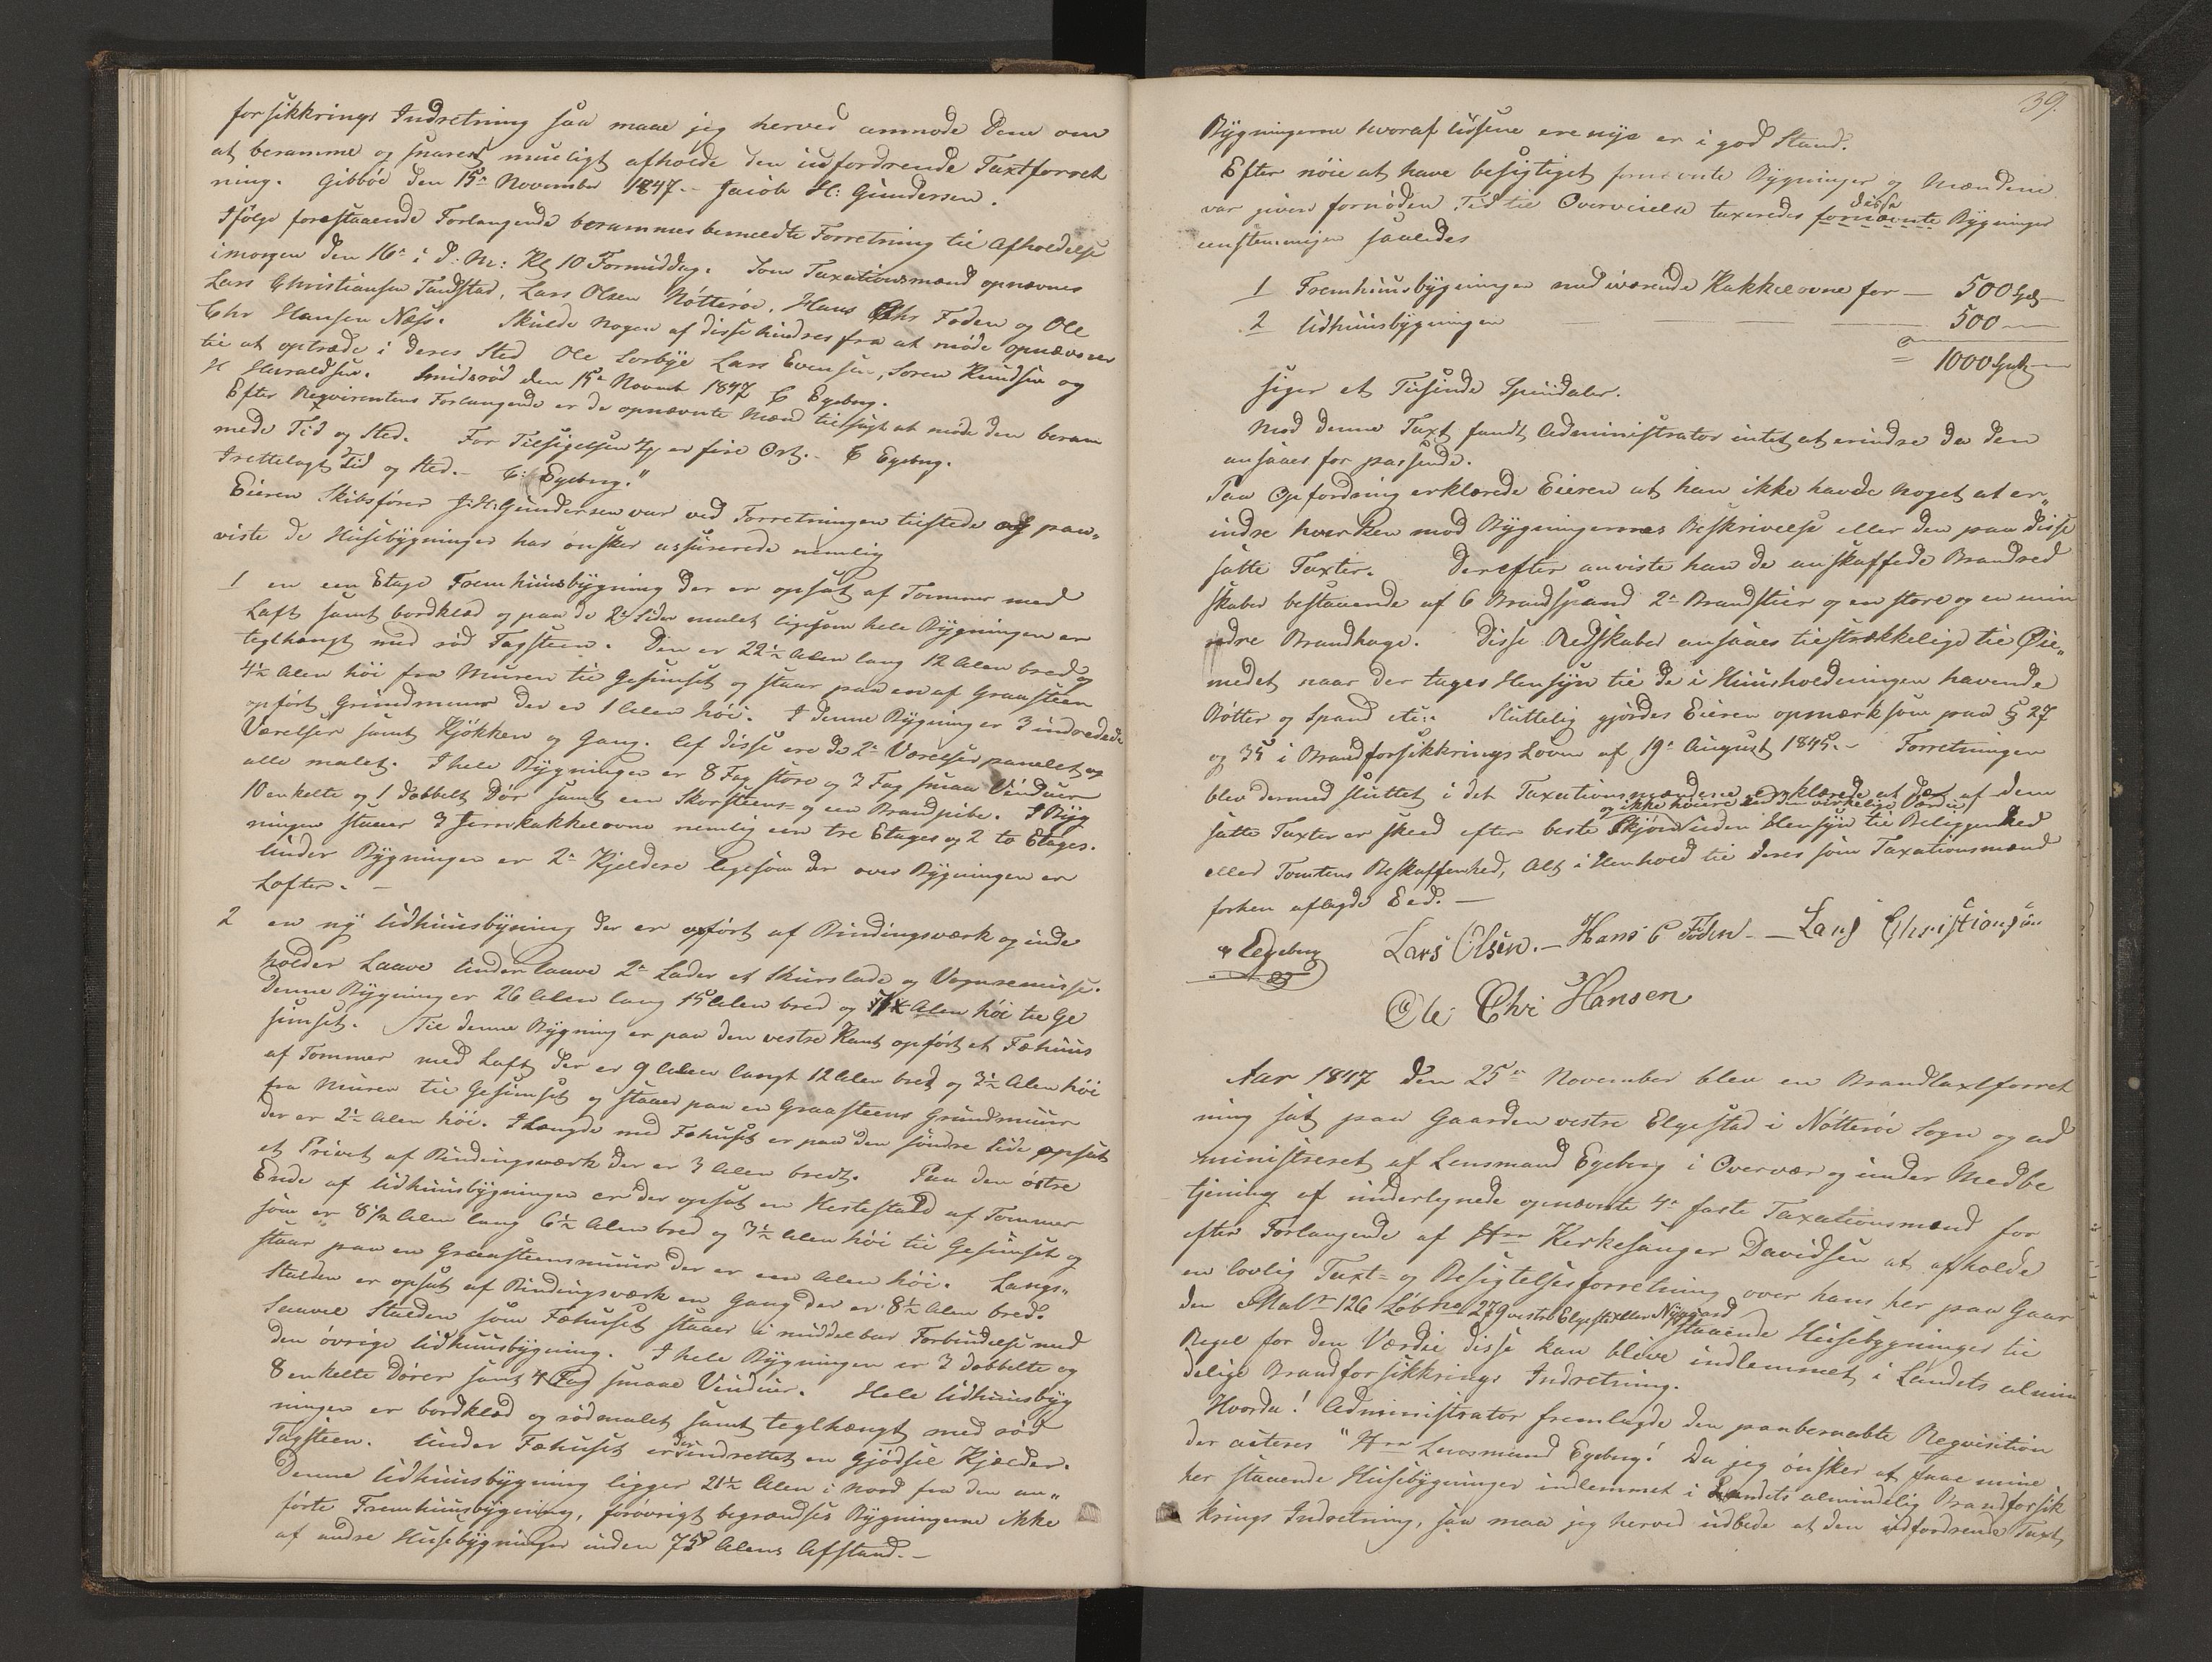 forsikkrings Indretning saa maae jeg herved anmode Dem om
at beramme og snarest mueligt afholde den udfordrende Taxtforret
ning. Gibbøe den 15de November 1847. Jacob H: Gundersen.
Ifølge forestaaende Forlangende berammes bemeldte Forretning til Afholdelse
imorgen den 16de i d: M: Kl 10 Formiddag. Som Taxationsmænd opnævnes
Lars Christiansen Tandstad, Lars Olsen Nøtterøe, Hans Chr Foden og Ole
Chr Hansen Næss. Skulde nogen af disse hindres fra at møde opnævnes
til at optræde i deres Sted Ole Sorbye Lars Evensen, Søren Knudsen og
H Haraldsen. Smidsrød den 15de Novemb 1847 C Egeberg.
Efter Reqvirentens Forlangende er de opnævnte Mænd tilsagt at møde den beram
mede Tid og Sted. For Tilsigelsen 4/ er fire Ort. C Egeberg.
Irettelagt Tid og Sted. C: Egeberg."
Eieren Skibsfører J: H: Gundersen var ved Forretningen tilstede og paa„
viste de Huusebygninger han ønsker assurerede nemlig
1 en een Etage Fremhuusbygning der er opsat af Tømmer med
Loft samt bordklæd og paa de 2de Sider malet ligesom hele Bygningen er
teglhængt med rød Tagsteen. Den er 22½ Alen lang 12 Alen bred og
4½ Alen høi fra Muren til Gesimset og staar paa en af Graasteen
opført Grundmuur der er 1 Alen høi. I denne Bygning er 3 indredede
Værelser samt Kjøkken og Gang. Af disse ere de 2de Værelser panelet og
alle malet. I hele Bygningen er 8 Fag store og 2 Fag smaa Vinduer
10 enkelte og 1 dobbelt Dør samt een Skorsteens= og een Brandpibe. I Byg
ningen staaer 3 Jernkakkelovne nemlig een tre Etages og 2 to Etages.
Under Bygningen er 2de Kjeldere ligesom der over Bygningen er
Lofter. –
2 en ny Udhuusbygning der er opført af Bindingsværk og inde
holder Laave Underlaave 2de Lader et Skurslade og Vognremisse.
Denne Bygning er 26 Alen lang 15 Alen bred og Alen høi til Ge
simset. Til denne Bygning er paa den vestre Kant opført et Fæhuus
af Tømmer med Loft der er 9 Alen langt 12 Alen bred og 3½ Alen høi
fra Muren til Gesimset og staaer paa en Graasteens Grundmuur
der er 2½ Alen høi. I Længde med Fæhuset er paa den søndre Side opsat
et Privet af Bindingsværk der er 3 Alen bredt. Paa den østre
Ende af Udhuusbygningen er der opsat en Hestestald af Tømmer
som er 8½ Alen lang 6½ Alen bred og 3½ Alen høi til Gesimset og
staar paa en Graasteensmuur der er een Alen høi. Langs„
Stalden er opsat af Bindingsværk en Gang der er 8½ Alen bred.
Saavel Stalden som Fæhuset staaer i umiddelbar Forbindelse med
den øvrige Udhuusbygning. I hele Bygningen er 3 dobbelte og
8 enkelte Dører samt 4 Fag smaae Vinduer. Hele Udhuusbyg
ningen er bordklæd og rødmalet samt teglhængt med rød
Tagsteen. Under Fæhuset er der indrettet en Gjødsel Kjælder.
Denne Udhuusbygning ligger 21½ Alen i nord fra den an„
førte Fremhuusbygning, forøvrigt begrændses Bygningerne ikke
af andre Huusebygninger inden 75 Alens Afstand. –
39.
Bygningerne hvoraf Udhusene ere nye er i god Stand.
Efter nøie at have besigtiget fornævnte Bygninger og Mændene
var given fornøden Tid til Overveielse taxeredes fornævnte disse Bygninger
eenstemmigen saaledes
1 Fremhuusbygningen med iværende Kakkelovne for — 500 Spd
2 Udhuusbygningen — 500 —
= 1000 Spd —
siger et Tusinde Speciedaler.
Mod denne Taxt fandt Administrator intet at erindre da den
ansaaes for passende.
Paa Opfordring erklærede Eieren at han ikke havde noget at er„
indre hverken mod Bygningernes Beskrivelse eller den paa disse
satte Taxter. Derefter anviste han de anskaffede Brandred
skaber bestaaende af 6 Brandspand 2de Brandstier og en store og en min
dre Brandhage. Disse Redskaber ansaaes tilstrækkelige til Øie„
medet naar der tages Hensyn til de i Huusholdningen havende
Bøtter og Spand etc:. Sluttelig gjordes Eieren opmærksom paa § 27
og 35 i Brandforsikkrings Loven af 19de August 1845. – Forretningen
blev dermed sluttet i det Taxationsmændene erklærede at den af dem
satte Taxter er skeed efter beste Skjøn og ikke høiere end den virkelige Værdie uden Hensyn til Beliggenhed
eller Tomtens Beskaffenhed, Alt i Henhold til deres som Taxationsmænd
forhen aflagde Eed. —
Egeberg Lars Olsen. – Hans C Foden – Lars Christiansen
Ole Chr Hansen
Aar 1847 den 25de November blev en Brandtaxtforret
ning sat paa Gaarden vestre Elgestad i Nøtterøe Sogn og ad
ministreret af Lensmand Egeberg i Overvær og under Medbe
tjening af undertegnede opnævnte 4de faste Taxationsmænd for
efter Forlangende af Hrr Kirkesanger Davidsen at afholde
en lovlig Taxt= og Besigtelsesforretning over hans her paa Gaar
den Matr 126 Løbno 279 vestre Elgestad eller Nygaard staaende Huusebygninger til
Regel for den Værdie disse kan blive indlemmet i Landets almin
delige Brandforsikkrings Indretning.
Hvorda! Administrator fremlagde den paaberaabte Reqvisition
der citeres "Hrr Lensmand Egeberg! Da jeg ønsker at faae mine
her staaende Huusebygninger indlemmet i Landets almindelig Brandforsik
krings Indretning, saa maa jeg herved udbede at den udfordrende Taxt